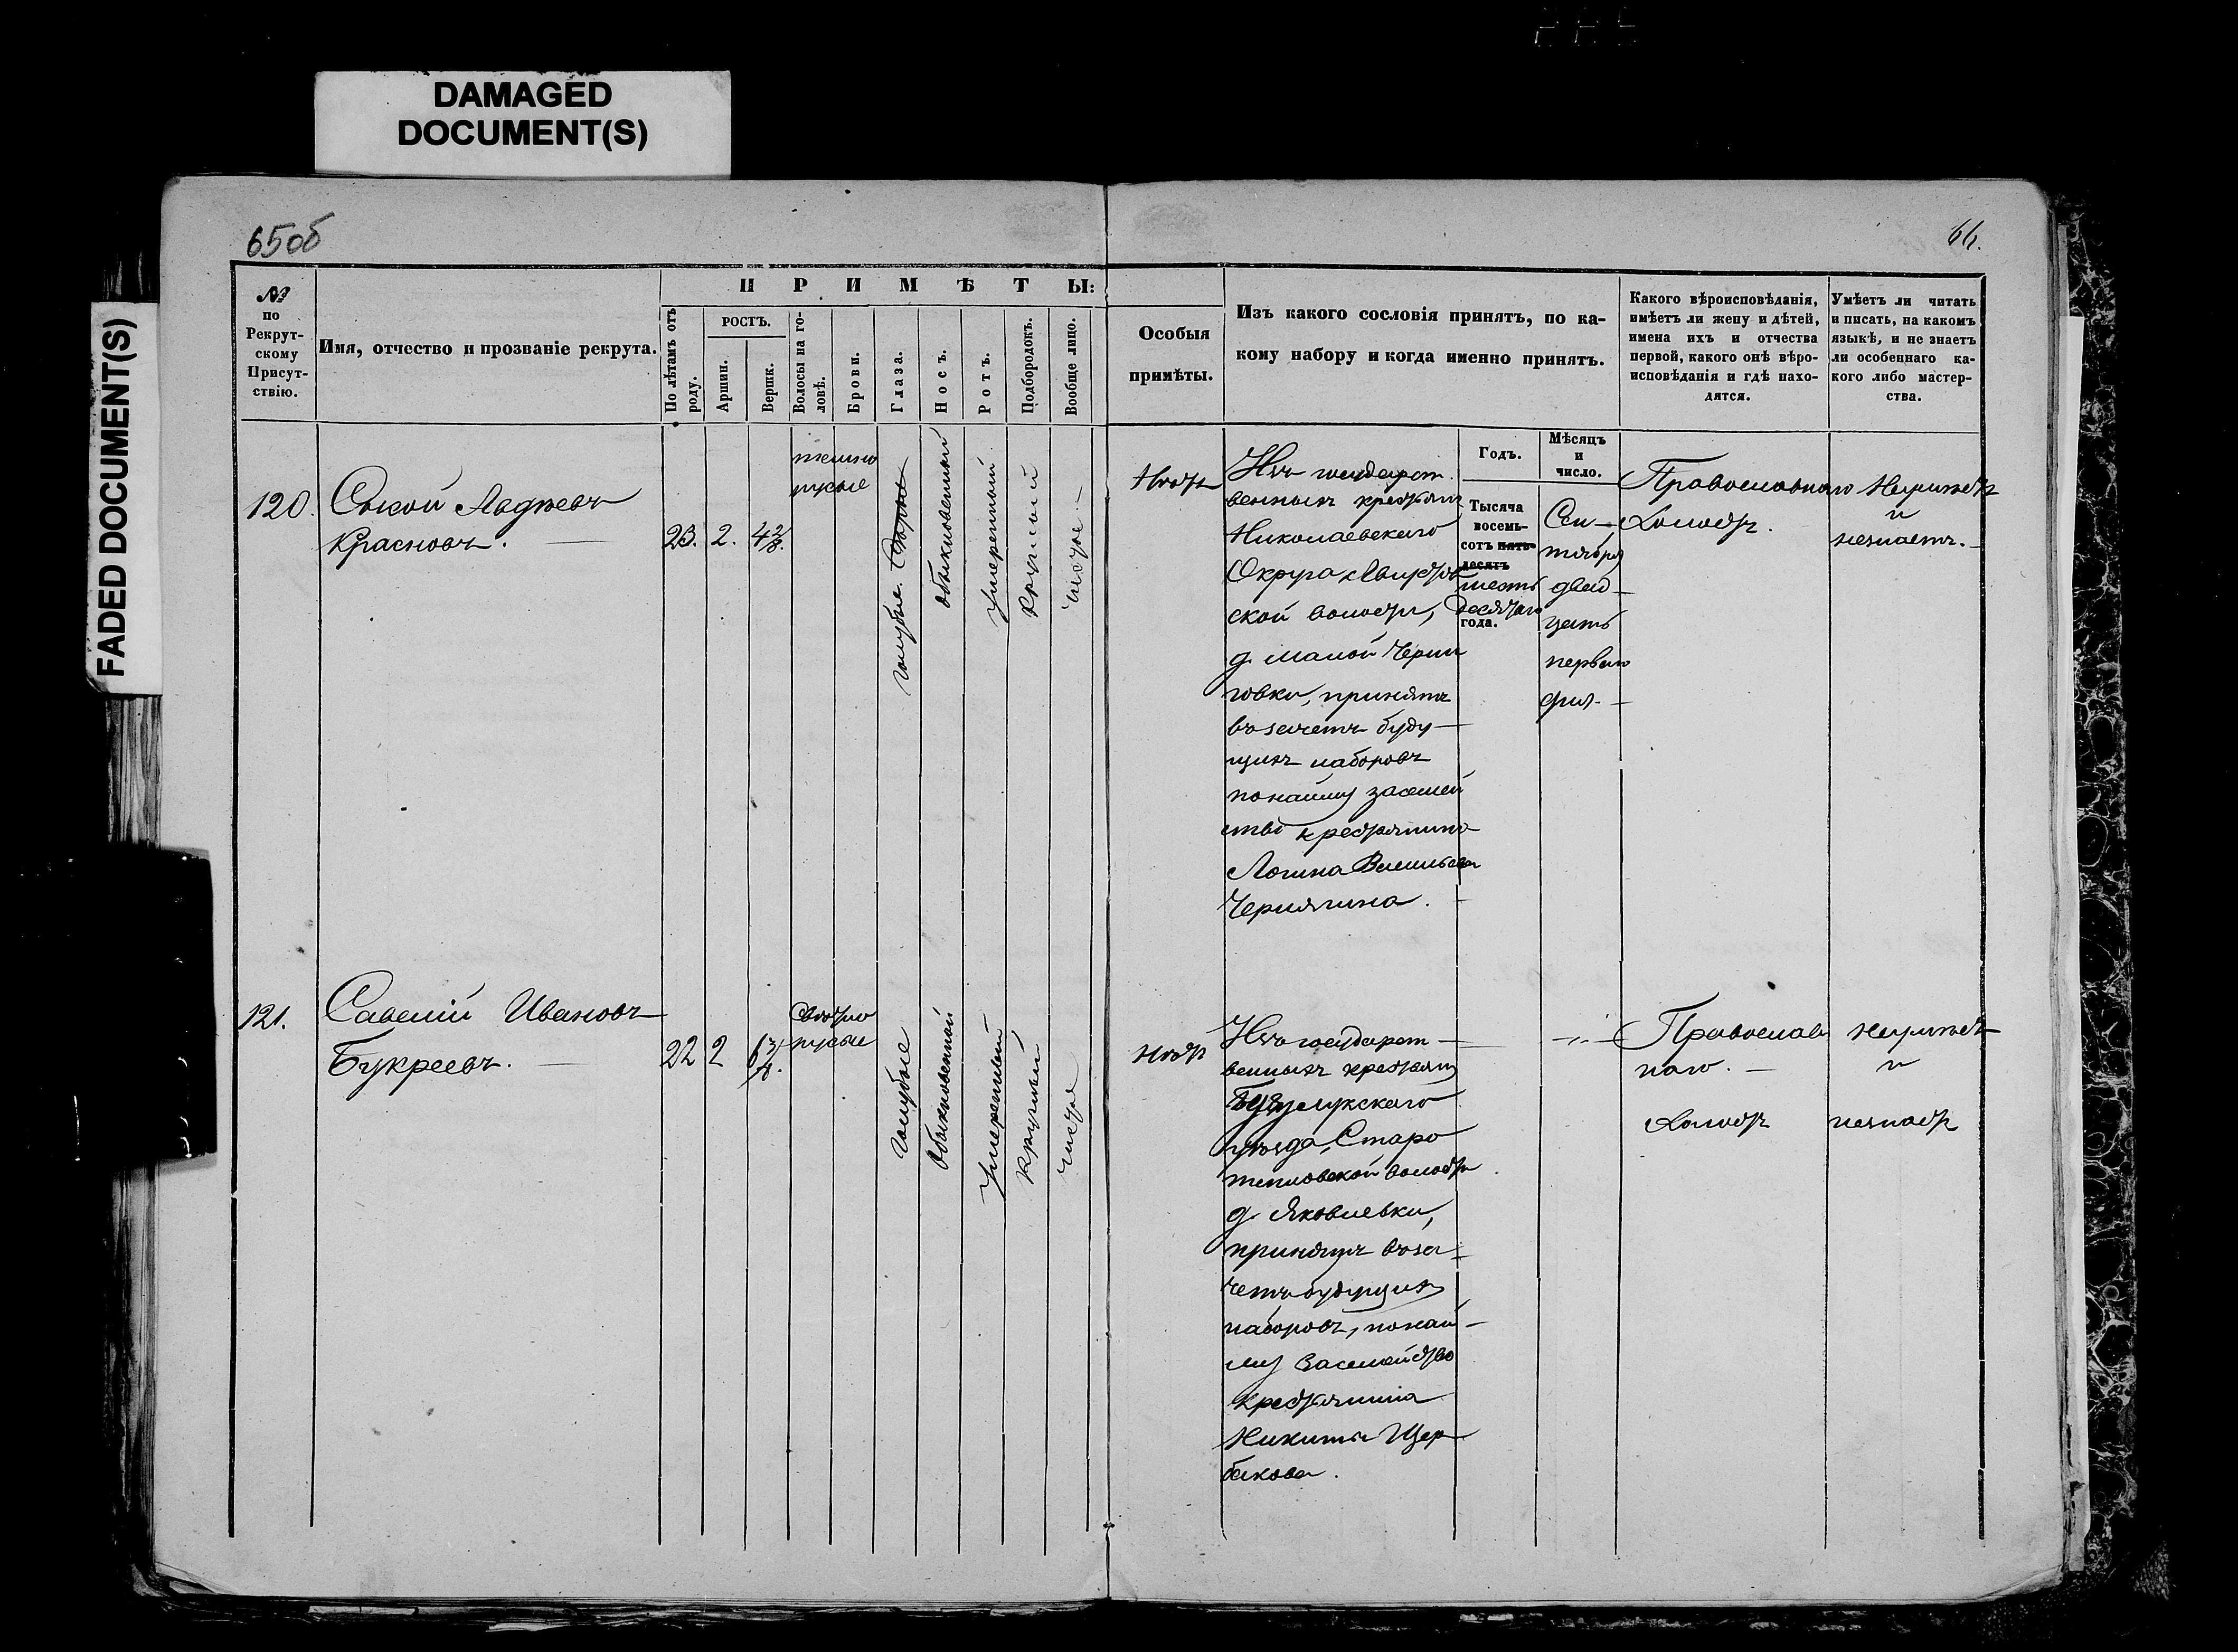 DAMAGED
DOCUMENT(S)
FADED DOCUMENT(S)
65об
66.
№
по
Рекрут-
скому
Присут-
ствію.
Имя, отчество и прозваніе рекрута.
ПРИМѢТЫ:
По лѣтамъ отъ
роду.
РОСТЪ.
Аршин.
Вершк.
Волосы на го-
ловѣ.
Брови.
Глаза.
Носъ.
Ротъ.
Подбородокъ.
Вообще лицо.
Особыя
примѣты.
Изъ какого сословія принятъ, по ка-
кому набору и когда именно принятъ.
Какого вѣроисповѣданія,
имѣетъ ли жену и дѣтей,
имена ихъ и отчества
первой, какого онѣ вѣро-
исповѣданія и гдѣ нахо-
дятся.
Умѣетъ ли читать
и писать, на какомъ
языкѣ, и не знаетъ
ли особеннаго ка-
кого либо мастер-
ства.
Годъ.
Мѣсяцъ
и
число.
120.
Красновъ.
23.
2.
4 2/8.
темно
русые
голубые
обыкновенный
умеренный
круглый
чистое
Нѣтъ
Изъ государст
венныхъ крестьянъ
Николаевскаго
Округа,
ской волости,
д. Малой Черни
говки, принятъ
въ зачетъ буду
щихъ наборовъ
по найму за семей
ство крестьянина
Логина Васильева
Чернягина.
Тысяча
восемь-
сотъ пять-
десятъ
шесть
десятаго
года.
Сен-
тября
двад-
цать
перваго
дня.
Православнаго
Холостъ.
Неумѣетъ
и
незнаетъ.
121.
Савелій Ивановъ
Букреевъ.
22
2
6 3/8.
светло
русые
голубые
обыкновенный
умеренный
круглый
чистое
Нѣтъ
Изъ государст
венныхъ крестьянъ
Бузулукскаго
уѣзда, Старо
тепловской волости
д. Яковлевки,
принятъ въ за-
четъ будущихъ
наборовъ, по най-
му за семейство
крестьянина
Никиты Щер
бакова.
-"-
Православ
наго.
Холостъ
неумѣетъ
и
незнаетъ